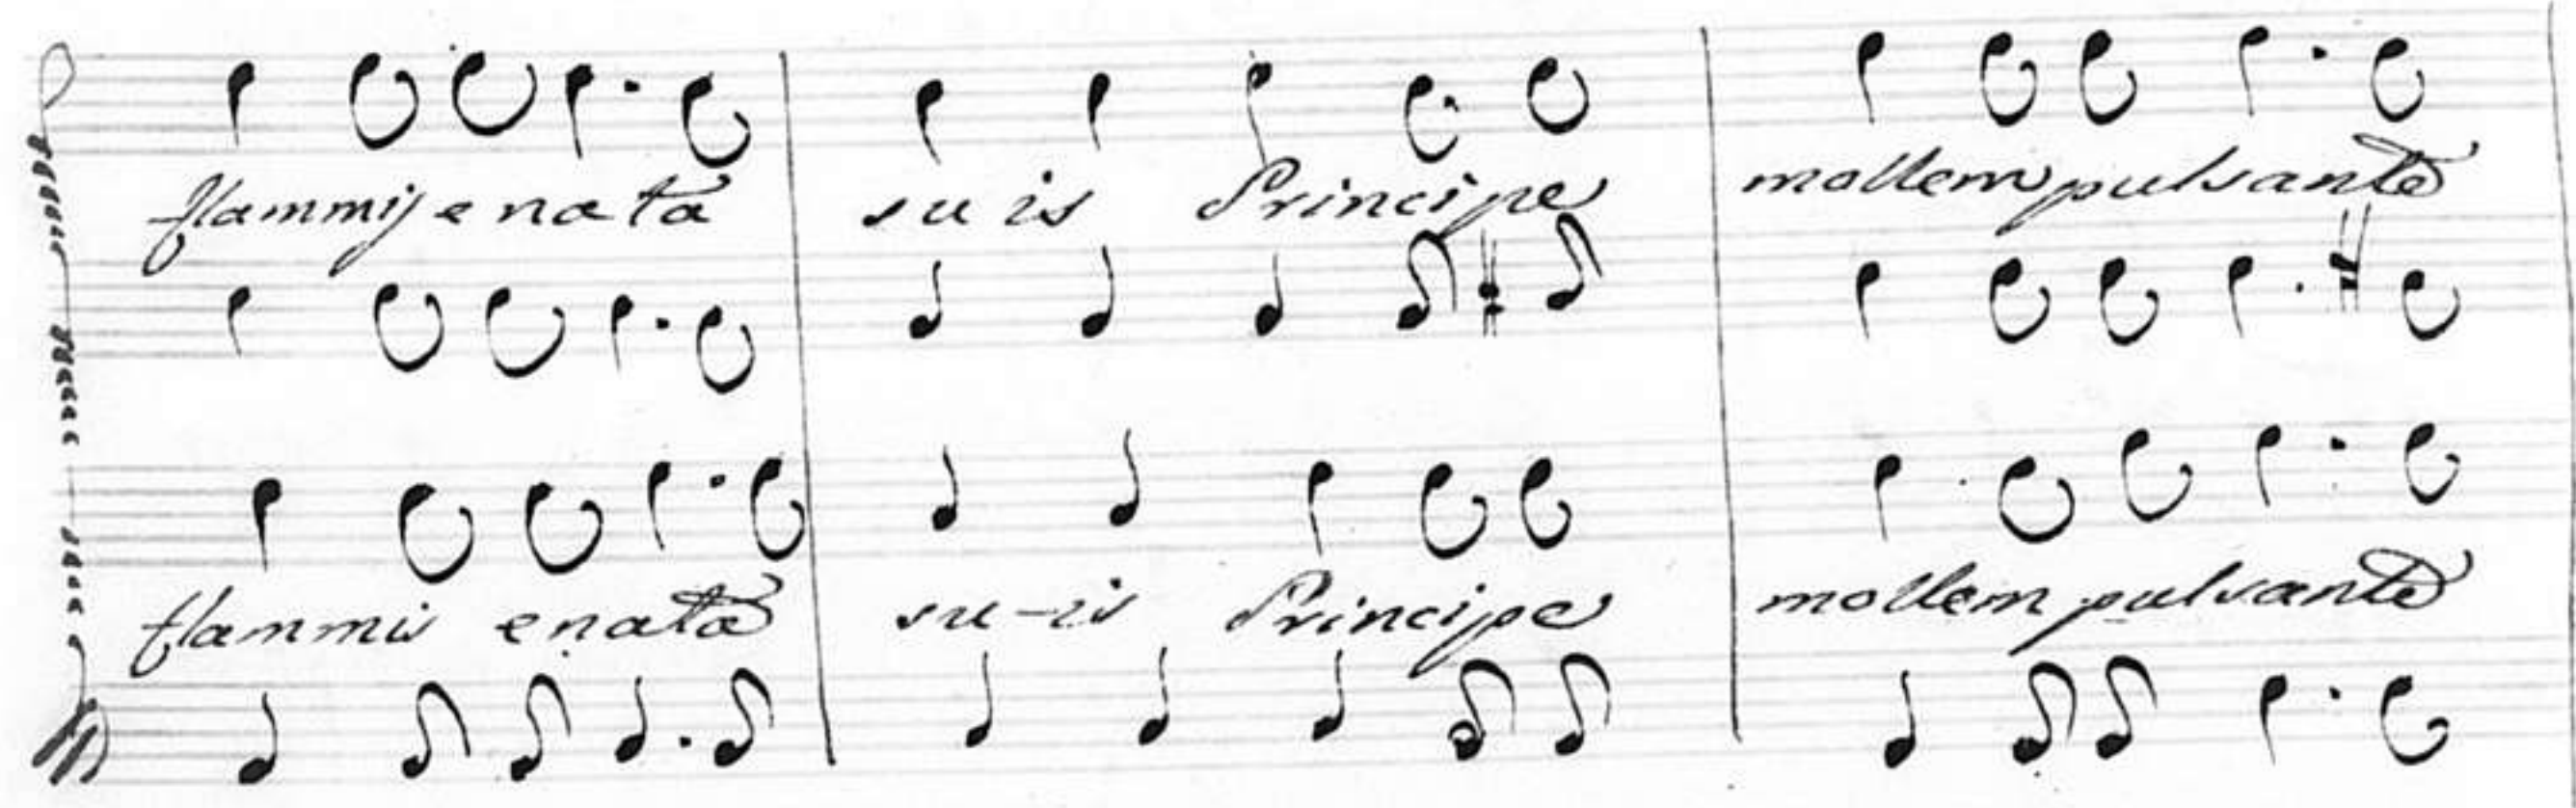 flammis e na ta su is Principe mollem pulsante
flammis enata su-is Principe mollem pulsante